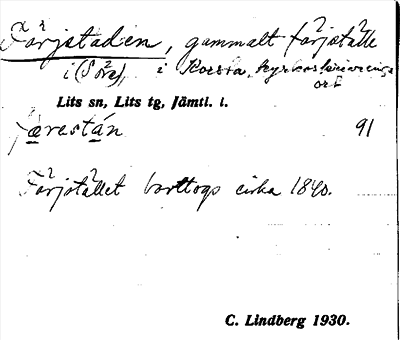 Färjstaden, gammalt färjställe
i (Söre), i Korsta, Kyrkas
ort
Lits sn, Lits tg, Jämtl. l.
færestán 91
Färjstället borttogs cirka 1840.
C. Lindberg 1930.